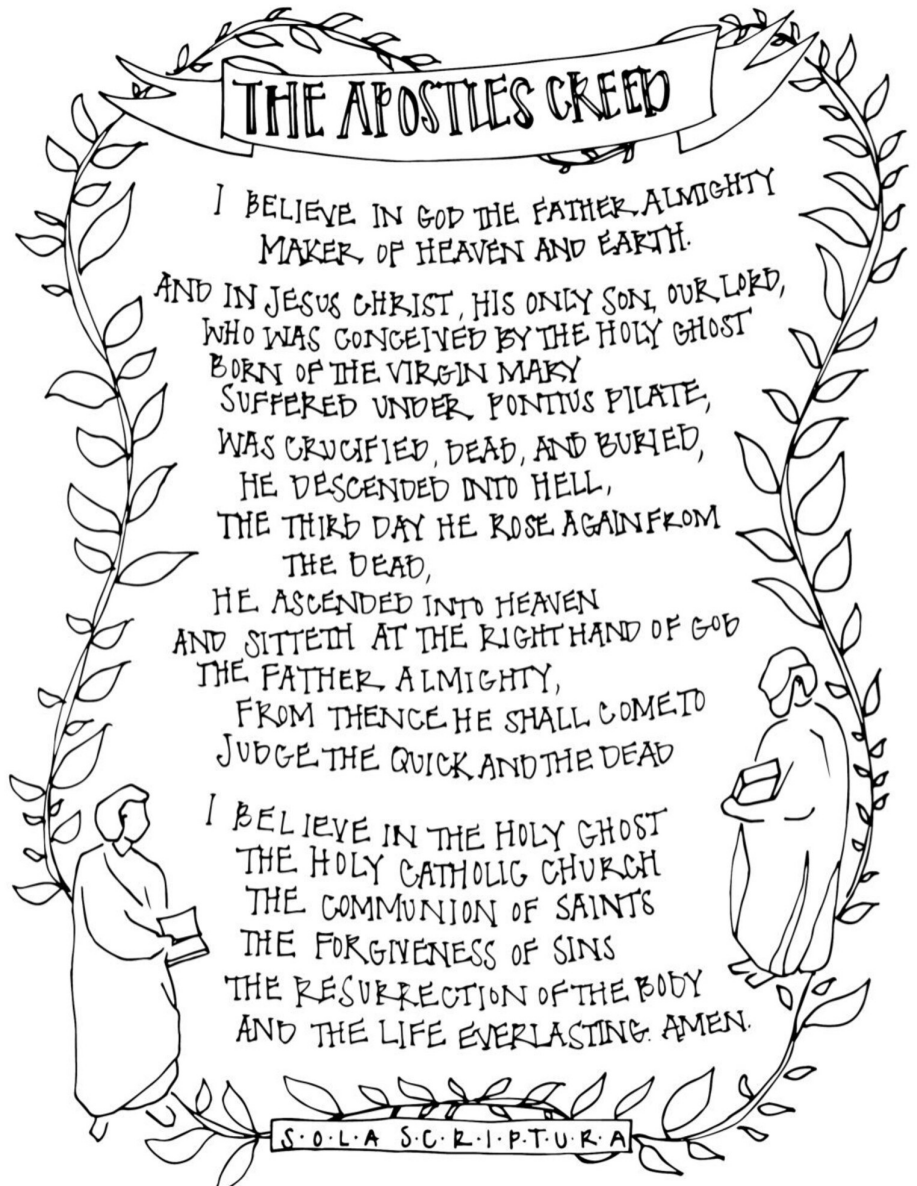 THE APOSTLES CREED
I BELIEVE IN GOD THE FATHER ALMIGHTY
MAKER OF HEAVEN AND EARTH.
AND IN JESUS CHRIST, HIS ONLY SON, OUR LORD,
WHO WAS CONCEIVED BY THE HOLY GHOST
BORN OF THE VIRGIN MARY
SUFFERED UNDER PONTIUS PILATE,
WAS CRUCIFIED, DEAD, AND BURIED,
HE DESCENDED INTO HELL,
THE THIRD DAY HE ROSE AGAIN FROM
THE DEAD,
HE ASCENDED INTO HEAVEN
AND SITTETH AT THE RIGHT HAND OF GOD
THE FATHER ALMIGHTY,
FROM THENCE HE SHALL COME TO
JUDGE THE QUICK AND THE DEAD
I BELIEVE IN THE HOLY GHOST
THE HOLY CATHOLIC CHURCH
THE COMMUNION OF SAINTS
THE FORGIVENESS OF SINS
THE RESURRECTION OF THE BODY
AND THE LIFE EVERLASTING. AMEN.
S·O·L·A S·C·R·I·P·T·U·R·A